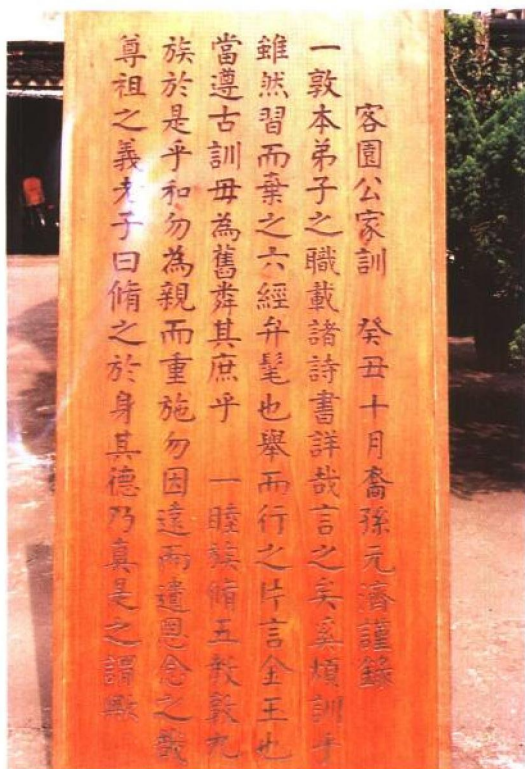 客園公家訓　癸丑十月裔孫元濟謹錄
一敦本弟子之職載諸詩書詳哉言之矣奚煩訓乎
雖然習而棄之六經弁髦也舉而行之片言金玉也
當遵古訓毋為舊舞其庶乎　一睦族脩五教敦九
族於是乎和勿為親而重施勿因遠而遺恩念之哉
尊祖之義老子曰脩之於身其德乃真是之謂歟